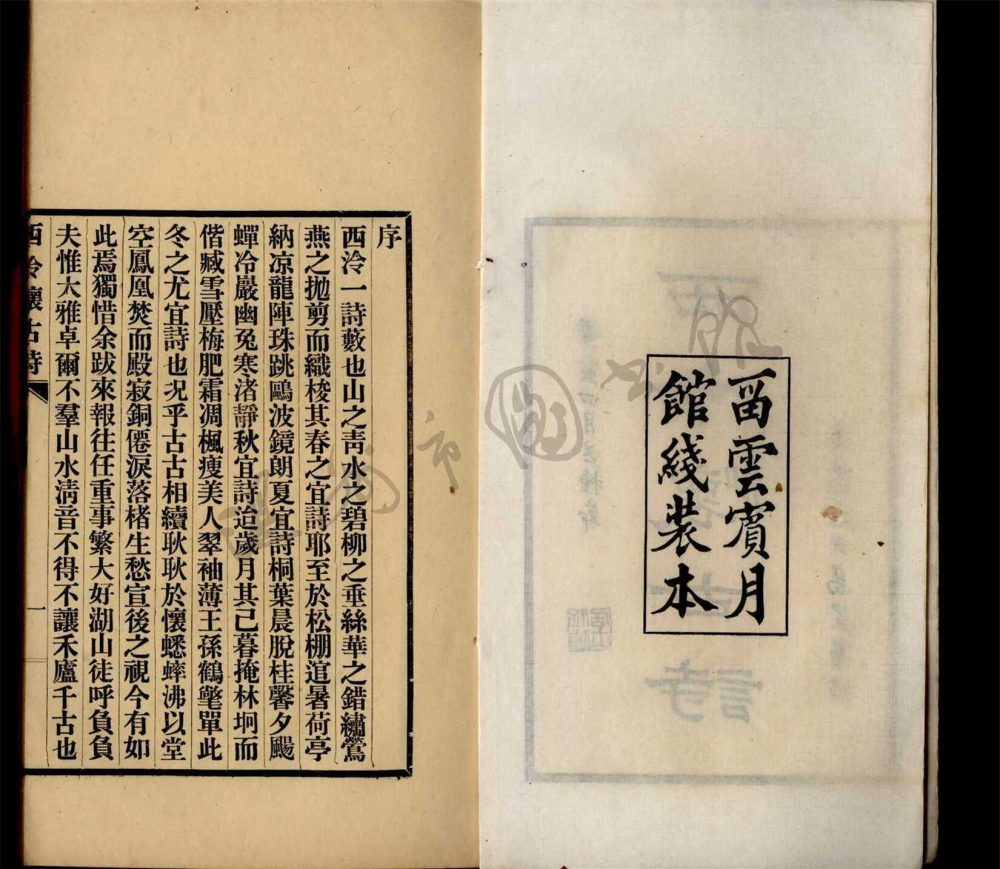 畱雲賓月
館綫裝本
序
西泠一詩藪也山之靑水之碧柳之垂絲華之錯繡鶯
燕之拋剪而織梭其春之宜詩耶至於松棚逭暑荷亭
納凉龍陣珠跳鷗波鏡朗夏宜詩桐葉晨脫桂馨夕颺
蟬冷巖幽兔寒渚靜秋宜詩迨歲月其已暮掩林坰而
偕臧雪壓梅肥霜凋楓瘦美人翠袖薄王孫鶴氅單此
冬之尤宜詩也况乎古古相續耿耿於懷蟋蟀沸以堂
空鳳凰焚而殿寂銅僊淚落楮生愁宣後之視今有如
此焉獨惜余跋來報往任重事繁大好湖山徒呼負負
夫惟大雅卓爾不羣山水淸音不得不讓禾廬千古也
西泠懷古詩
一